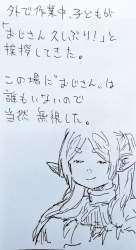 外で作業中、子どもが
「おじさん久しぶり!」と
挨拶してきた。
この場に"おじさん"は
誰もいないので
当然無視した。